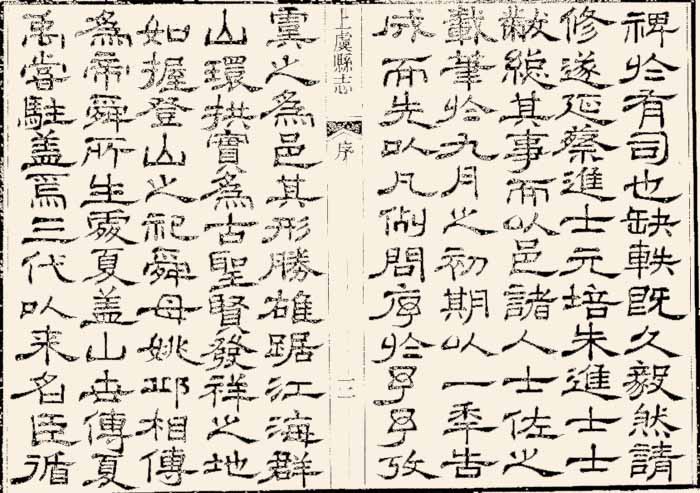 裨扵有司也缺軼既久毅然請
修遂延蔡進士元培朱進士士
黻總其事而以邑諸人士佐之
載筆扵九月之初期以一秊告
成而先以凡例問序扵予予攷
上虞縣志
序
二
虞之為邑其形勝雄踞江海群
山環拱實為古聖賢發祥之地
如握登山之祀舜母姚邱相傳
為帝舜所生處夏盖山世傳夏
禹嘗駐盖焉三代以来名臣循